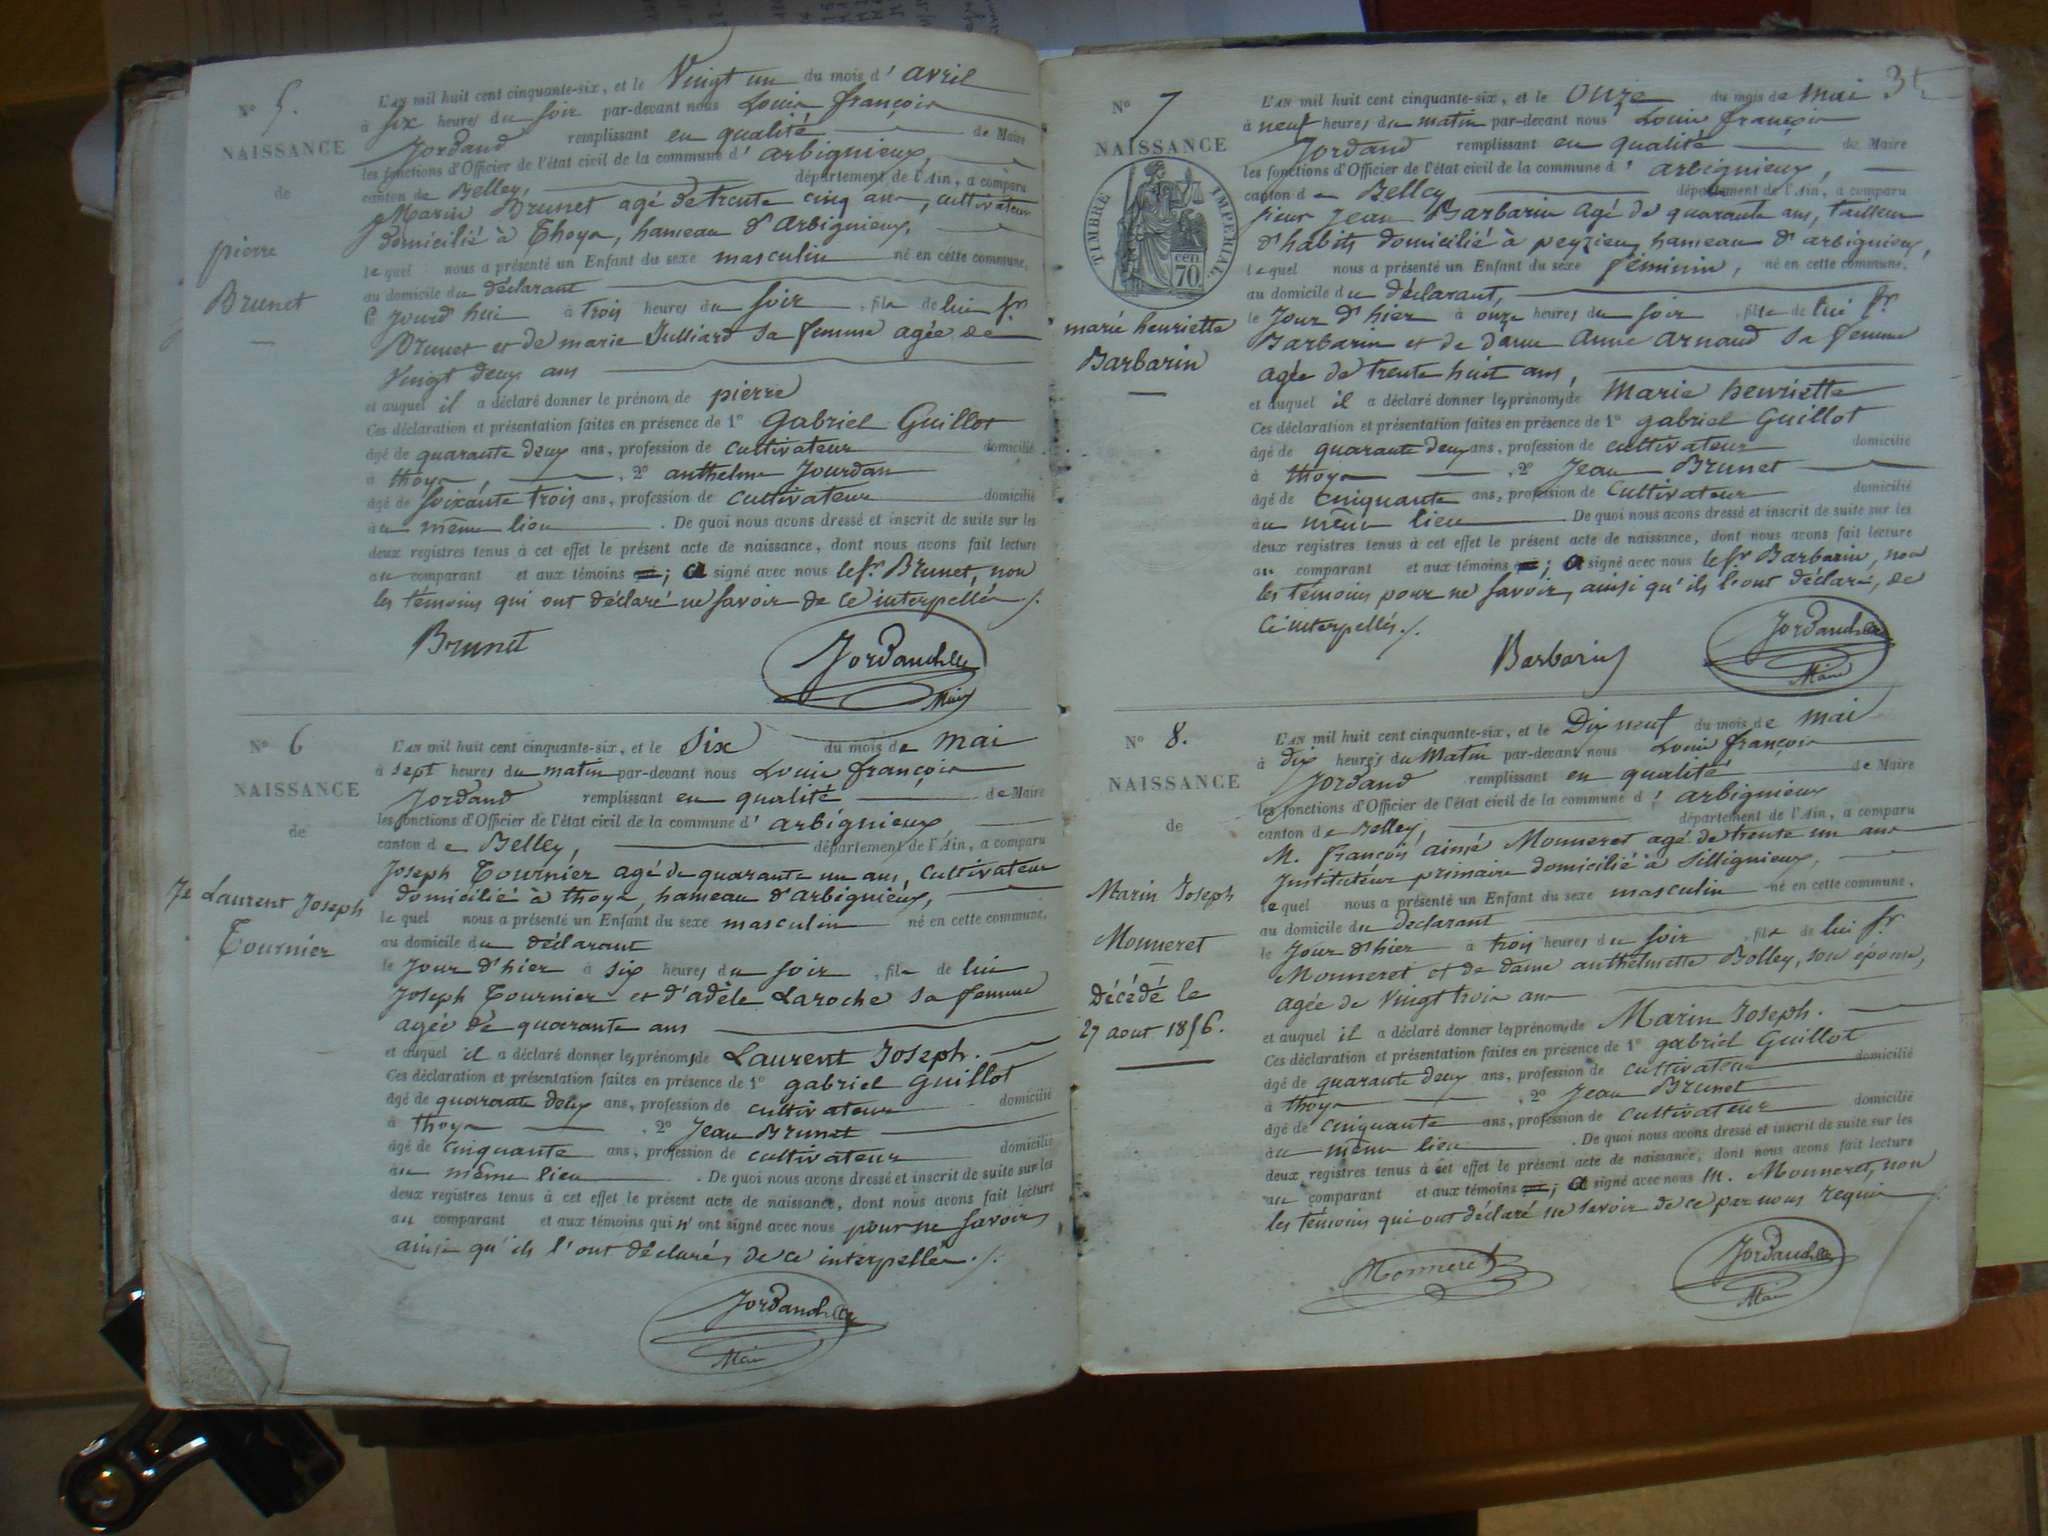 N° 5.
NAISSANCE
de
pierre
Brunet
L'AN mil huit cent cinquante-six, et le Vingt un du mois d' avril
à six heures du soir par-devant nous Louis françois
Jordand remplissant en qualité de Maire
les fonctions d'Officier de l'état civil de la commune d' arbignieux,
canton de Belley, département de l'Ain, a comparu
Marin Brunet agé de trente cinq ans, cultivateur
domicilié à Thoys, hameau d'Arbignieux,
lequel nous a présenté un Enfant du sexe masculin né en cette commune,
au domicile du déclarant
ce jourd'hui à trois heures du soir, fils de lui sr
Brunet et de marie Julliard sa femme agée de
Vingt deux ans
et auquel il a déclaré donner le prénom de pierre
Ces déclaration et présentation faites en présence de 1° Gabriel Guillot
âgé de quarante deux ans, profession de cultivateur domicilié
à thoys, , 2° anthelme Jourdan
âgé de soixante trois ans, profession de cultivateur domicilié
au même lieu . De quoi nous avons dressé et inscrit de suite sur les
deux registres tenus à cet effet le présent acte de naissance, dont nous avons fait lecture
au comparant et aux témoins ; a signé avec nous le sr Brunet, non
les témoins qui ont déclaré ne savoir de ce interpellés ./.
Brunet
Jordand
Maire
N° 6
NAISSANCE
de
Laurent Joseph
Tournier
L'AN mil huit cent cinquante-six, et le six du mois de mai
à sept heures du matin par-devant nous Louis françois
Jordand remplissant en qualité de Maire
les fonctions d'Officier de l'état civil de la commune d' arbignieux
canton de Belley, département de l'Ain, a comparu
Joseph Tournier agé de quarante un ans, cultivateur
domicilié à thoys, hameau d'arbignieux,
lequel nous a présenté un Enfant du sexe masculin né en cette commune,
au domicile du déclarant
le jour d'hier à six heures du soir, fils de lui
Joseph Tournier et d'adèle Laroche sa femme
agée de quarante ans
et auquel il a déclaré donner les prénoms de Laurent Joseph.
Ces déclaration et présentation faites en présence de 1° gabriel Guillot
âgé de quarante deux ans, profession de cultivateur domicilié
à thoys , 2° Jean Brunet
âgé de cinquante ans, profession de cultivateur domicilié
au même lieu . De quoi nous avons dressé et inscrit de suite sur les
deux registres tenus à cet effet le présent acte de naissance, dont nous avons fait lecture
au comparant et aux témoins qui n'ont signé avec nous pour ne savoir
ainsi qu'ils l'ont déclaré, de ce interpellés ./.
Jordand
Maire
35
N° 7
NAISSANCE
TIMBRE IMPERIAL
70 cen.
marie henriette
Barbarin
L'AN mil huit cent cinquante-six, et le Onze du mois de mai
à neuf heures du matin par-devant nous Louis françois
Jordand remplissant en qualité de Maire
les fonctions d'Officier de l'état civil de la commune d' arbignieux,
canton de Belley département de l'Ain, a comparu
sieur Jean Barbarin agé de quarante ans, tailleur
d'habits domicilié à peyzieu, hameau d'arbignieux,
lequel nous a présenté un Enfant du sexe féminin, né en cette commune,
au domicile du déclarant,
le jour d'hier à onze heures du soir, fille de lui sr
Barbarin et de dame Anne Arnaud sa femme
agée de trente huit ans,
et auquel il a déclaré donner les prénoms de Marie henriette
Ces déclaration et présentation faites en présence de 1° gabriel Guillot
âgé de quarante deux ans, profession de cultivateur domicilié
à thoys , 2° Jean Brunet
âgé de cinquante ans, profession de cultivateur domicilié
au même lieu . De quoi nous avons dressé et inscrit de suite sur les
deux registres tenus à cet effet le présent acte de naissance, dont nous avons fait lecture
au comparant et aux témoins ; a signé avec nous le sr Barbarin, non
les témoins pour ne savoir, ainsi qu'ils l'ont déclaré, de
ce interpellés ./.
Barbarin
Jordand
Maire
N° 8.
NAISSANCE
de
Marin Joseph
Monneret
Décédé le
27 aout 1856.
L'AN mil huit cent cinquante-six, et le Dix neuf du mois de mai
à dix heures du Matin par-devant nous Louis françois
Jordand remplissant en qualité de Maire
les fonctions d'Officier de l'état civil de la commune d' arbignieux
canton de Belley, département de l'Ain, a comparu
M. françois aimé Monneret agé de trente un ans
Instituteur primaire domicilié à Sillignieux,
lequel nous a présenté un Enfant du sexe masculin né en cette commune,
au domicile du déclarant
le jour d'hier à trois heures du soir, fils de lui sr
Monneret et de dame anthelmette Bolley, son épouse,
agée de vingt trois ans
et auquel il a déclaré donner les prénoms de Marin Joseph.
Ces déclaration et présentation faites en présence de 1° gabriel Guillot
âgé de quarante deux ans, profession de cultivateur domicilié
à thoys , 2° Jean Brunet
âgé de cinquante ans, profession de cultivateur domicilié
au même lieu . De quoi nous avons dressé et inscrit de suite sur les
deux registres tenus à cet effet le présent acte de naissance, dont nous avons fait lecture
au comparant et aux témoins ; a signé avec nous M. Monneret, non
les témoins qui ont déclaré ne savoir de ce par nous requis ./.
Monneret
Jordand
Maire